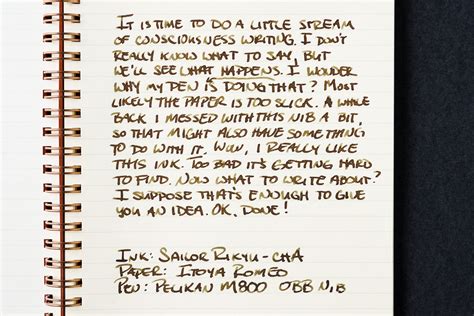 It is time to do a little stream
of consciousness writing. I don't
really know what to say, but
we'll see what happens. I wonder
why my pen is doing that? Most
likely the paper is too slick. A while
back I messed with this nib a bit,
so that might also have something
to do with it. Wow, I really like
this ink. Too bad it's getting hard
to find. Now what to write about?
I suppose that's enough to give
you an idea. OK, done!
Ink: Sailor Rikyu-cha
Paper: Itoya Romeo
Pen: Pelikan M800 OBB nib